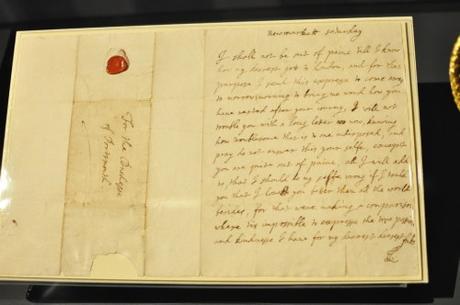 newmarkett saturday
I shall not be out of paine till I know
how my dearest gott to London, and for that
purpose I send this expresse to come away
to morrow morning to bring me word how you
have rested after your journy, I will not
trouble you with a long letter now, knowing
how troublesome that is to one indisposed, and
pray do not answer this your selfe, except
you are quite out of paine, all I will add
is, that I should do my selfe wrong if I tould
you that I love you better than all the world
besides, for that were making a comparison
where tis impossible to expresse the true passion
and kindnesse I have for my dearest dearest fubs
For the Dutchesse
of Portsmouth